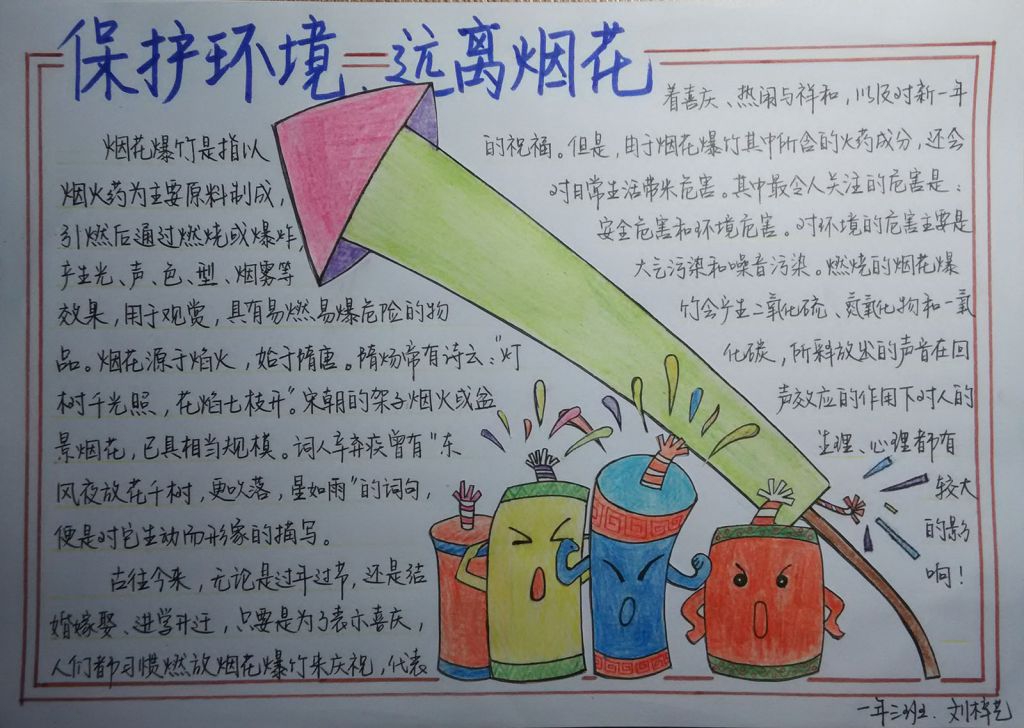 保护环境、远离烟花
烟花爆竹是指以
烟火药为主要原料制成，
引燃后通过燃烧或爆炸，
产生光、声、色、型、烟雾等
效果，用于观赏，具有易燃易爆危险的物
品。烟花源于焰火，始于隋唐。隋炀帝有诗云："灯
树千光照，花焰七枝开"。宋朝的架子烟火或盆
景烟花，已具相当规模。词人辛弃疾曾有"东
风夜放花千树，更吹落，星如雨"的词句，
便是对它生动而形象的描写。
古往今来，无论是过年过节，还是结
婚嫁娶、进学升迁，只要是为了表示喜庆，
人们都习惯燃放烟花爆竹来庆祝，代表
着喜庆、热闹与祥和，以及对新一年
的祝福。但是，由于烟花爆竹其中所含的火药成分，还会
对日常生活带来危害。其中最令人关注的危害是：
安全危害和环境危害。对环境的危害主要是
大气污染和噪音污染。燃烧的烟花爆
竹会产生二氧化硫、氮氧化物和一氧
化碳，所释放出的声音在回
声效应的作用下对人的
生理、心理都有
较大
的影
响！
一年三班 刘梓艺